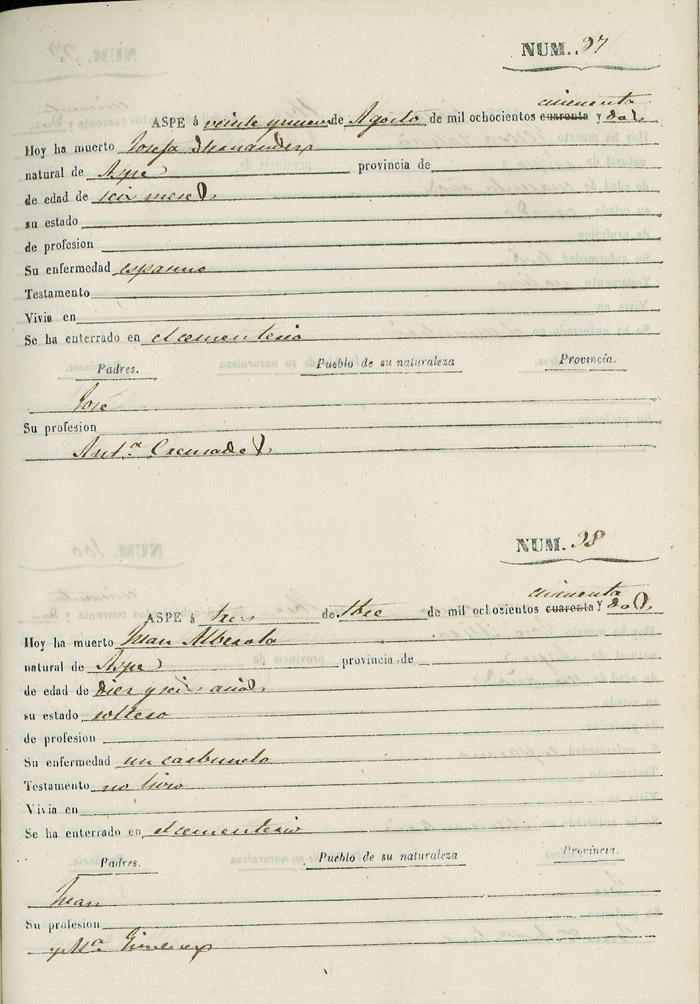 NUM. 97
cincuenta
ASPE á veinte y nueve de Agosto de mil ochocientos cuarenta y dos
Hoy ha muerto Josefa Hernandez
natural de Aspe provincia de
de edad de seis meses
su estado
de profesion
Su enfermedad espasmo
Testamento
Vivia en
Se ha enterrado en el cementerio
Padres. Pueblo de su naturaleza Provincia.
José
Su profesion
Ant.ª
NUM. 98
cincuenta
ASPE á tres de de mil ochocientos cuarenta Y dos
Hoy ha muerto Juan Alberola
natural de Aspe provincia de
de edad de diez y seis años
su estado soltero
de profesion
Su enfermedad un carbunclo
Testamento no hizo
Vivia en
Se ha enterrado en el cementerio
Padres. Pueblo de su naturaleza Provincia.
Juan
Su profesion
y M.ª Gimenez